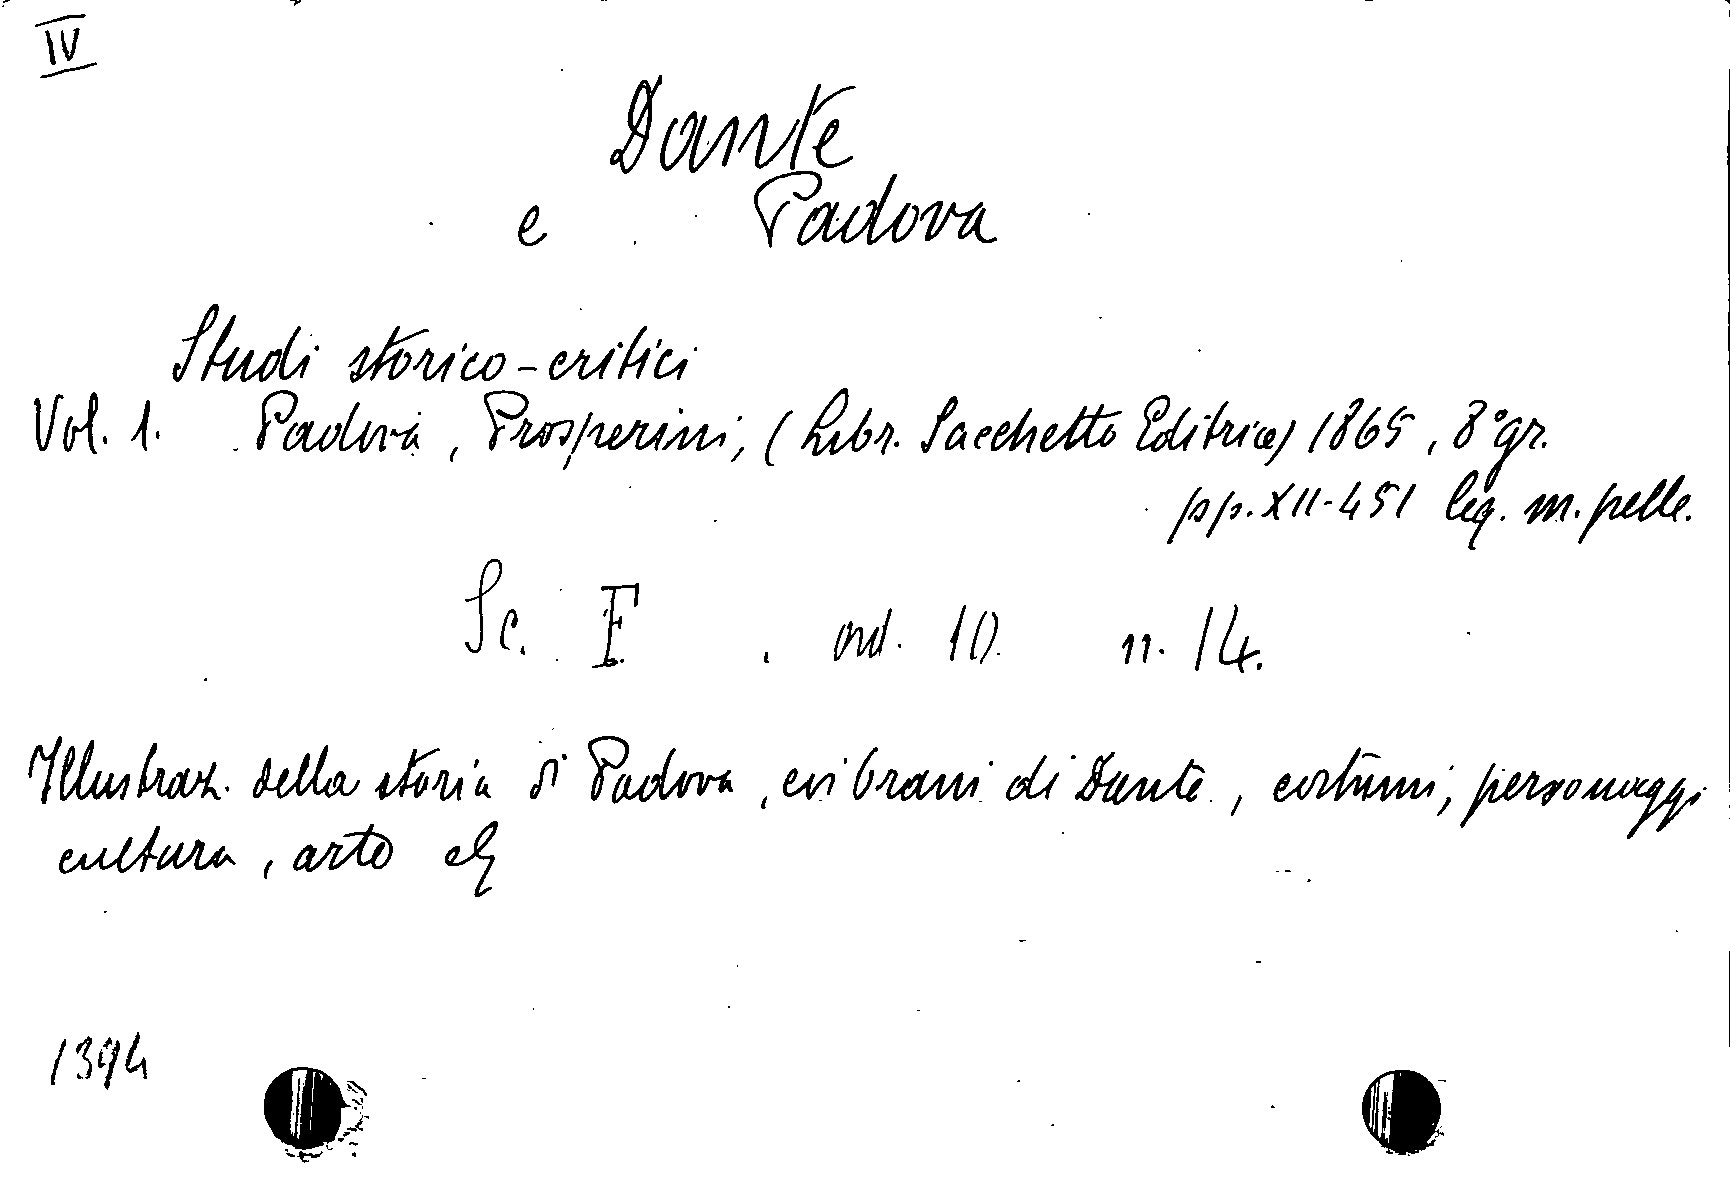 IV
Dante
e Padova
Studi storico-critici
Vol. 1. Padova, Prosperini, (Libr. Sacchetto Editrice) 1865, 8° gr.
pp. XII-451 leg. m. pelle.
Sc. F. ord. 10 n. 14.
Illustraz. della storia di Padova, coi brani di Dante, costumi, personaggi
cultura, arte
1394